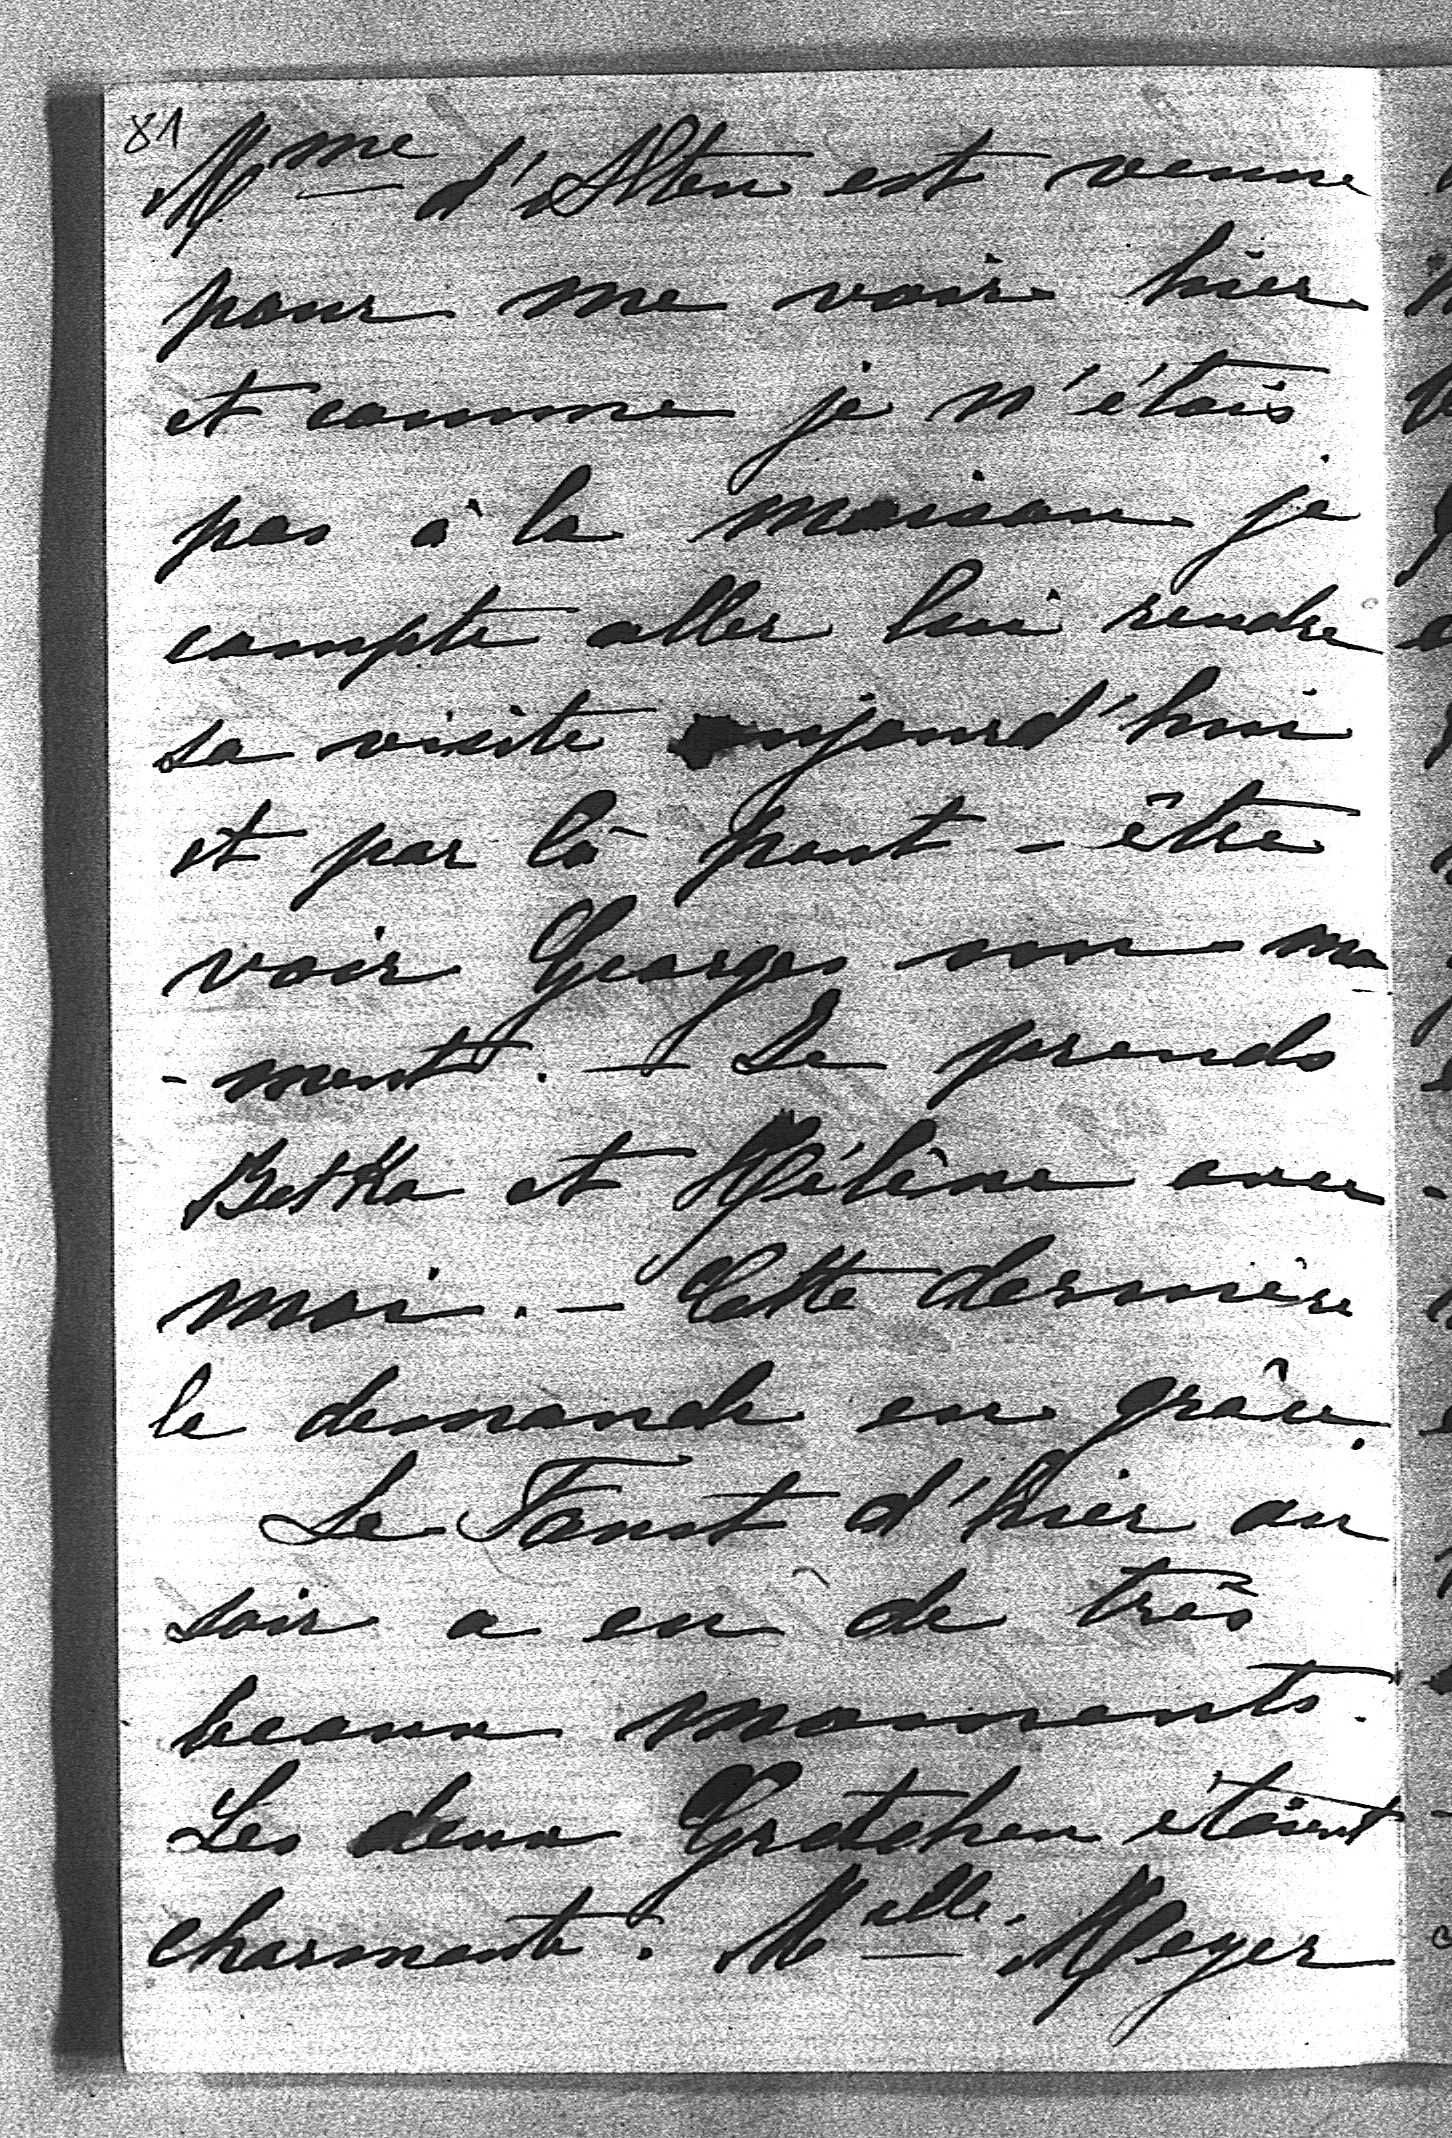 81
Mme d'Alten est venue
pour me voir hier
et comme je n'étais
pas à la maison je
compte aller lui rendre
sa visite aujourd'hui
et par là peut-être
voir Georges un mo
-ment. – Je prends
Betka et Hélène avec
moi. – Cette dernière
le demande en grâce.
Le Faust d'hier au
soir a eu de très
beaux moments.
Les deux Gretchen étaient
charmante. Melle. Meyer